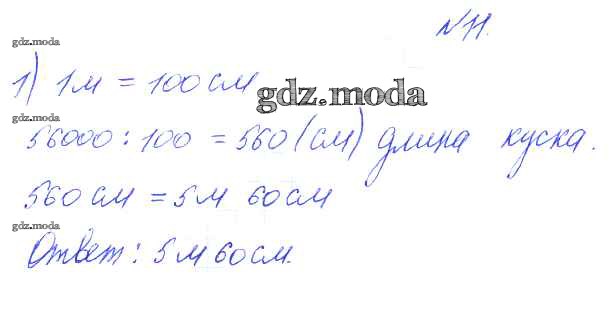 №11.
gdz.moda
1) 1м = 100см
gdz.moda
gdz.moda
56000 : 100 = 560 (см) длина куска.
560 см = 5м 60см
gdz.moda
Ответ: 5м 60см.